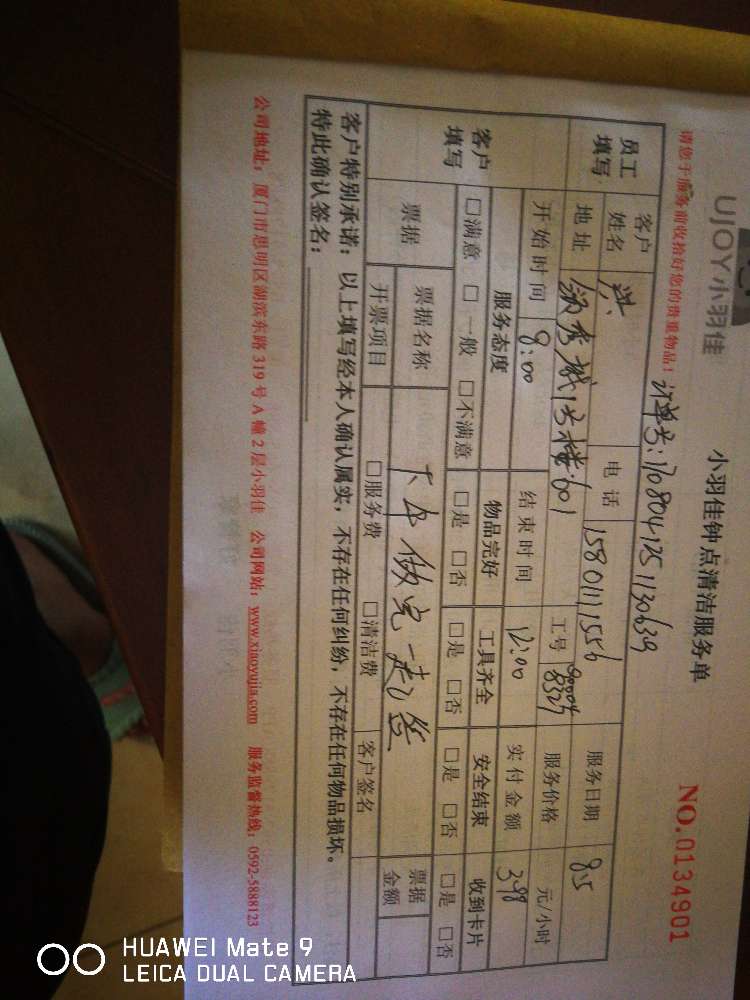 UJOY小羽佳
小羽佳钟点清洁服务单
请您于服务前收拾好您的贵重物品！
订单号：170804125130639
NO.0134901
员工填写
客户姓名 洪
电话 15801111556
服务日期 8.5
地址
1号楼601
工号 90004 8327
服务价格 元/小时
开始时间 8:00
结束时间 12:00
实付金额 398
客户填写
服务态度 物品完好 工具齐全 安全结束 收到卡片
□满意 □一般 □不满意 □是 □否 □是 □否 □是 □否 □是 □否
票据
票据名称
下午做完一起签
票据金额
开票项目 □服务费 □清洁费 客户签名
客户特别承诺：以上填写经本人确认属实，不存在任何纠纷，不存在任何物品损坏。
特此确认签名：
公司地址：厦门市思明区湖滨东路 319 号 A 幢 2 层小羽佳 公司网站：www.xiaoyujia.com 服务监督热线：0592-5888123
HUAWEI Mate 9
LEICA DUAL CAMERA